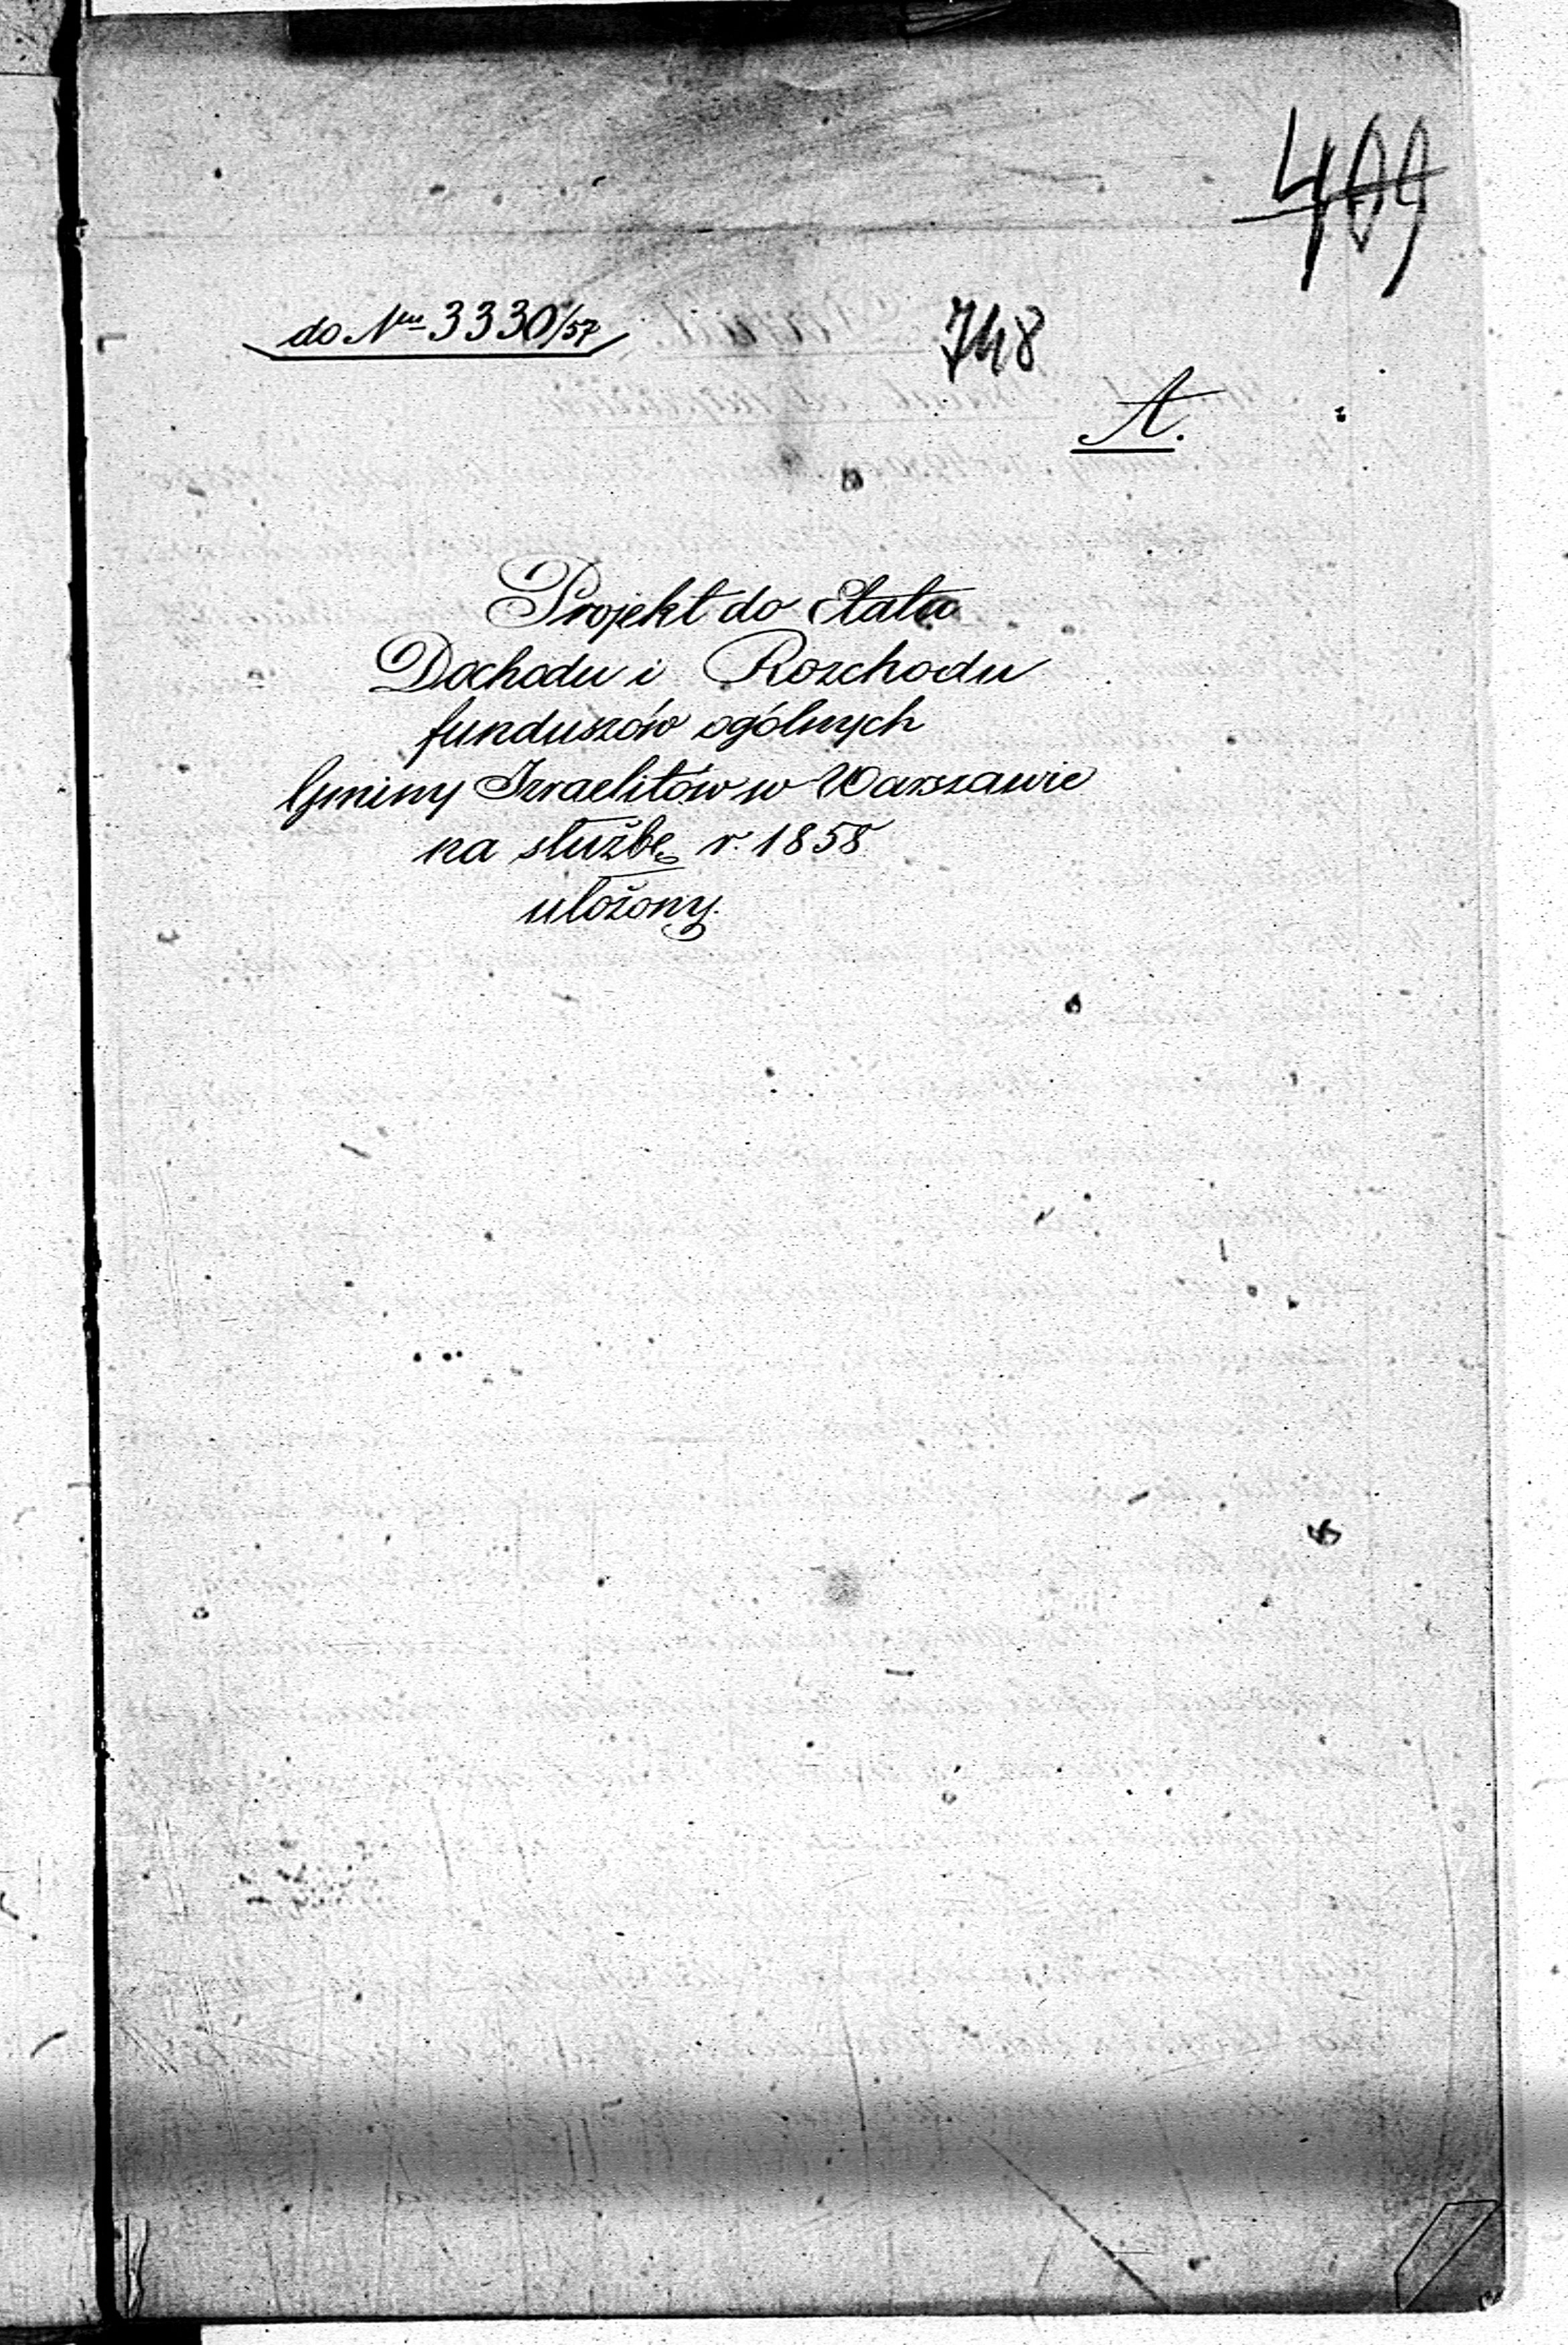 409
do Nru 3330/57
748
A.
Projekt do Etatu
Dochodu i Rozchodu
funduszów ogólnych
Gminy Izraelitów w Warszawie
na służbę r. 1858
ułożony.